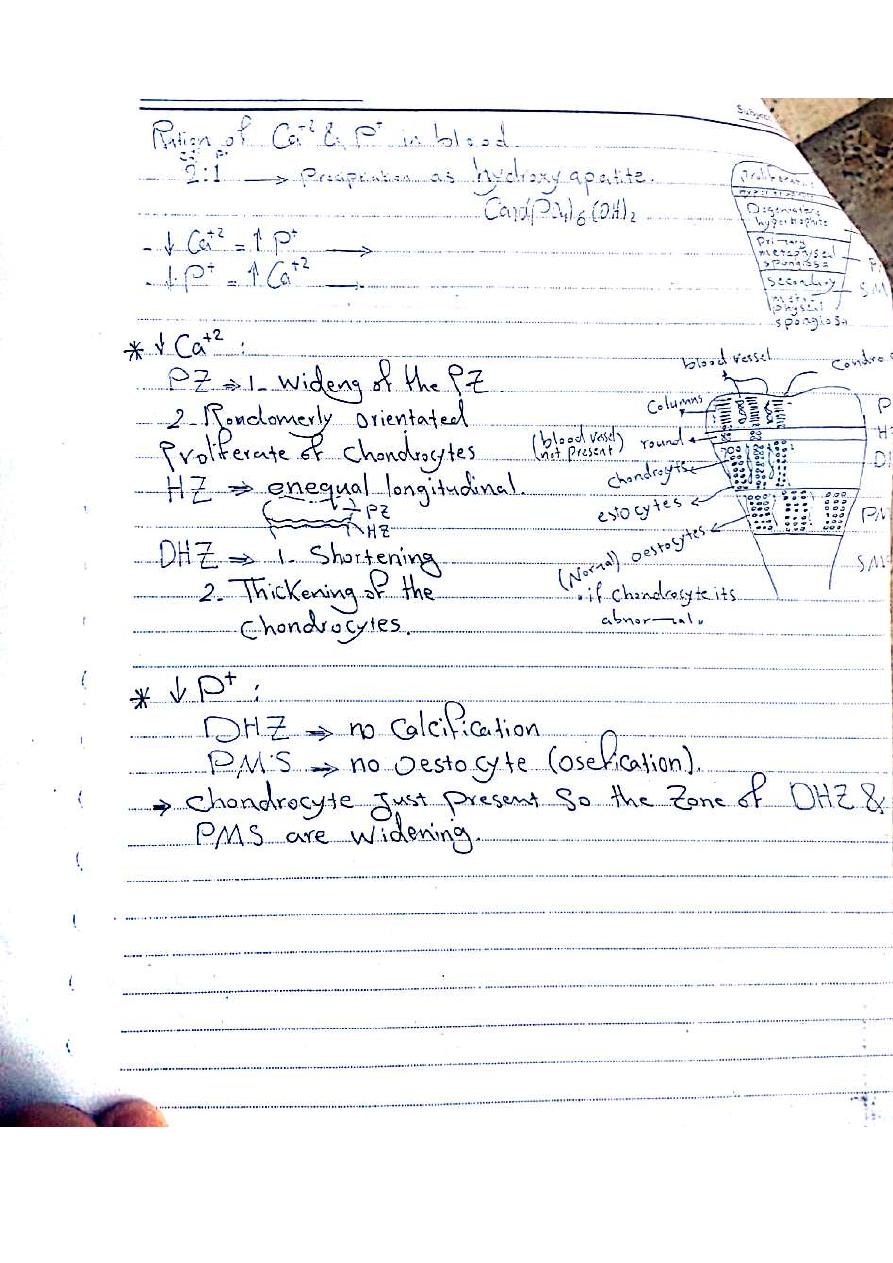 Subject
Ration of Ca+2 & P+ in blood
Ca P+
2:1 → as hydroxy apatite.
- ↓ Ca+2 = ↑ P+ →
- ↓ P+ = ↑ Ca+2 →
Degenitave
hyperthophite
Primary
metaphyseal
spongiosa
Secondary
meta
physial
spongiosa
* ↓ Ca+2 :
PZ ⇒ 1- wideng of the PZ
2- Rondomerly orientated
Proliferate of Chondrocytes
HZ ⇒ enequal longitudinal.
PZ
HZ
DHZ ⇒ 1. Shortening
2. Thickening of the
Chondrocytes.
blood vessel
Columns
(blood vessel) round
(not present)
chondrocyts
estocytes
(Normal) oestocytes
. if Chondrocyte its
abnormal.
* ↓ P+ :
DHZ ⇒ no Calcification
P.M.S ⇒ no oestocyte (osefication).
→ Chondrocyte Just Present So the Zone of DHZ &
PMS are widening.